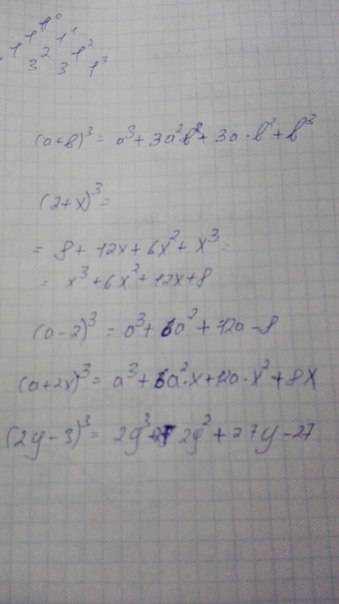 1 1⁰
1 1¹
1 2 1²
1 3 3 1³
(a+b)³= a³+3a²b+3a·b²+b³
(2+x)³=
= 8+12x+6x²+x³=
= x³+6x²+12x+8
(a-2)³= a³+6a²+12a-8
(a+2x)³= a³+6a²·x+12a·x²+8x
(2y-3)³= 2y³ 2y²+27y-27